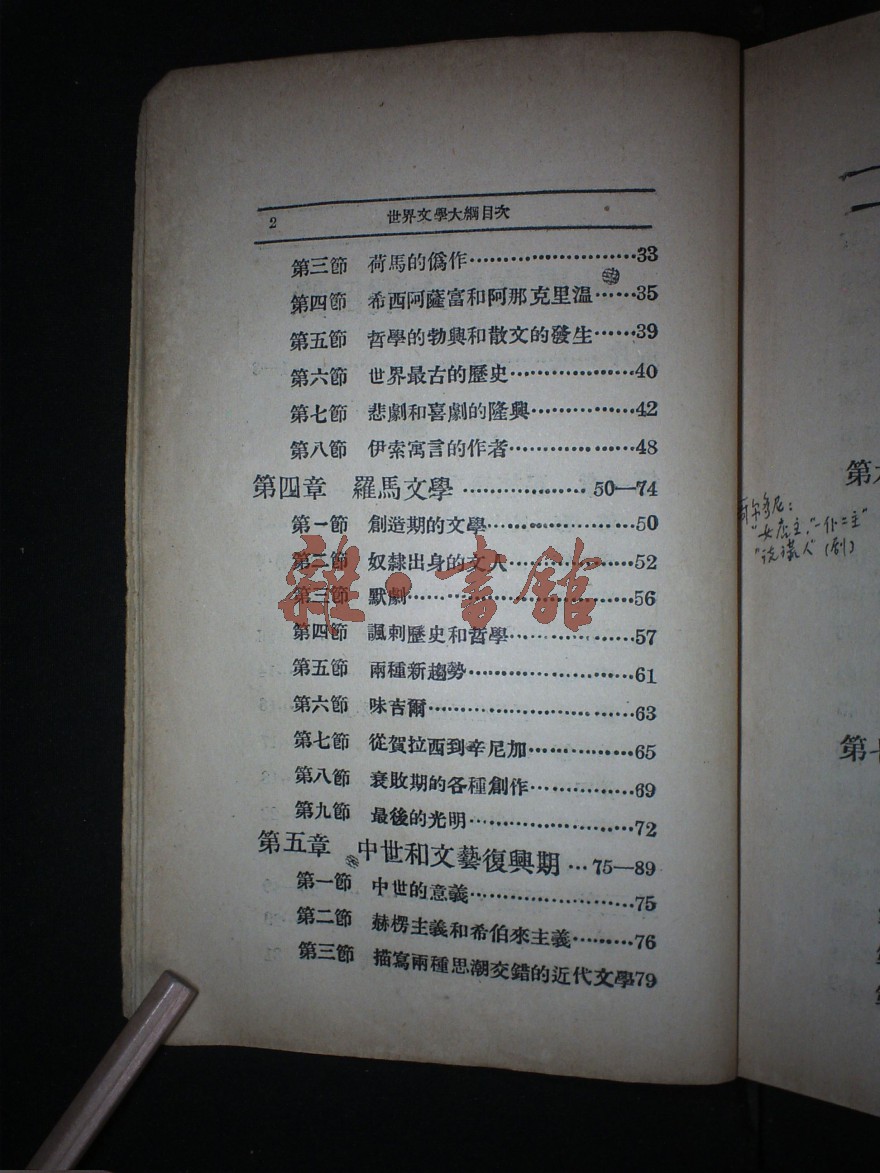 2 世界文學大綱目次
第三節 荷馬的僞作……………………33
第四節 希西阿薩富和阿那克里溫……35
第五節 哲學的勃興和散文的發生……39
第六節 世界最古的歷史………………40
第七節 悲劇和喜劇的隆興……………42
第八節 伊索寓言的作者………………48
第四章 羅馬文學………………50—74
第一節 創造期的文學…………………50
第二節 奴隸出身的文人………………52
第三節 默劇……………………………56
第四節 諷刺歷史和哲學………………57
第五節 兩種新趨勢……………………61
第六節 味吉爾…………………………63
第七節 從賀拉西到辛尼加……………65
第八節 衰敗期的各種創作……………69
第九節 最後的光明……………………72
第五章 中世和文藝復興期…75—89
第一節 中世的意義……………………75
第二節 赫楞主義和希伯來主義………76
第三節 描寫兩種思潮交錯的近代文學79
雜·書館
哥尔多尼：
"女店主"，"一仆二主"
"说谎人"（剧）
第
第